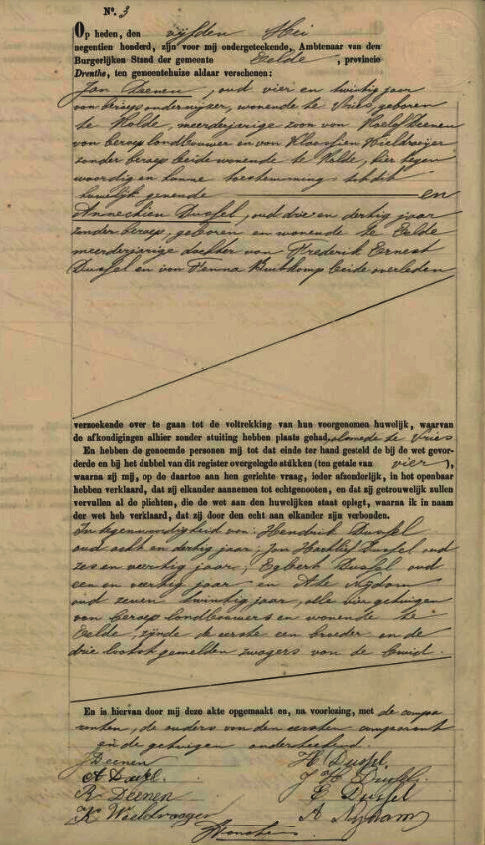 Nº. 3
Op heden, den vijfden Mei
negentien honderd, zijn voor mij ondergeteekende, Ambtenaar van den
Burgerlijken Stand der gemeente Eelde, provincie
Drenthe, ten gemeentehuize aldaar verschenen:
Jan Deenen, oud vier en twintig jaar
van beroep onderwijzer, wonende te Vries, geboren
te Rolde, meerderjarige zoon van Roelof Deenen
van beroep landbouwer en van Klaassien
zonder beroep beide wonende te Rolde, hier tegen
woordig en hunne toestemming tot dit
huwelijk gevende en
Annechien Dussel, oud drie en dertig jaar
zonder beroep, geboren en wonende te Eelde
meerderjarige dochter van Frederik Ernest
Dussel en van Fenna beide overleden
verzoekende over te gaan tot de voltrekking van hun voorgenomen huwelijk, waarvan
de afkondigingen alhier zonder stuiting hebben plaats gehad, alsmede te Vries
En hebben de genoemde personen mij tot dat einde ter hand gesteld de bij de wet gevor-
derde en bij het dubbel van dit register overgelegde stukken (ten getale van vier),
waarna zij mij, op de daartoe aan hen gerichte vraag, ieder afzonderlijk, in het openbaar
hebben verklaard, dat zij elkander aannemen tot echtgenooten, en dat zij getrouwelijk zullen
vervullen al de plichten, die de wet aan den huwelijken staat oplegt, waarna ik in naam
der wet heb verklaard, dat zij door den echt aan elkander zijn verbonden.
In tegenwoordigheid van: Hendrik Dussel
oud acht en dertig jaar; Jan Dussel oud
zes en veertig jaar; Egbert Dussel oud
een en veertig jaar en Nijdam
oud zeven twintig jaar, alle vier getuigen
van beroep landbouwers en wonende te
Eelde, zijnde de eerste een broeder en de
drie laatst gemelden zwagers van de bruid.
En is hiervan door mij deze akte opgemaakt en, na voorlezing, met de compa
ranten, de ouders van den eersten comparant
en de getuigen onderteekend.
J Deenen H Dussel,
A Dussel. J H Dussel.
R Deenen E Dussel
K A Nijdam